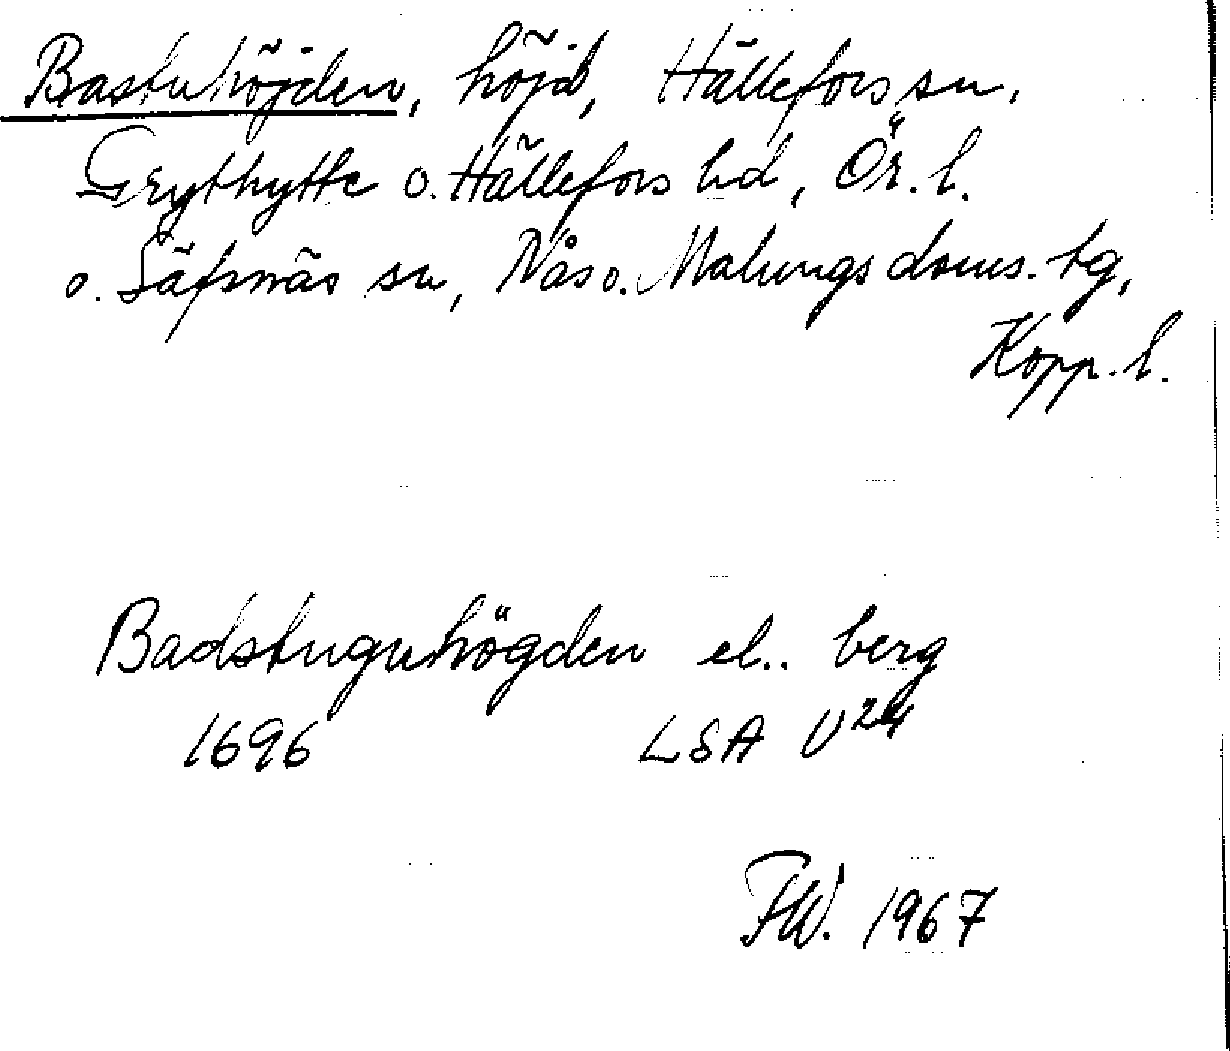 Bastuhöjden, höjd, Hällefors sn.
Grythytte o. Hällefors bd, Ör. l.
o. Säfsnäs sn, Nås o. Malungs doms. tg,
Kopp. l.
Badstuguhögden el.. berg
1696 LSA U24
FW. 1967